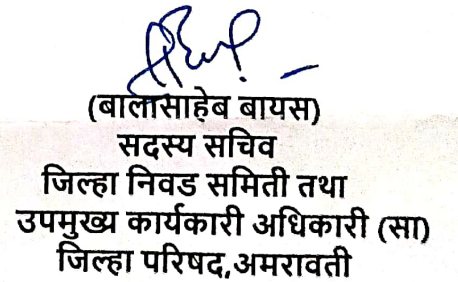 (बालासाहेब बायस)
सदस्य सचिव
जिल्हा निवड समिती तथा
उपमुख्य कार्यकारी अधिकारी (सा)
जिल्हा परिषद,अमरावती